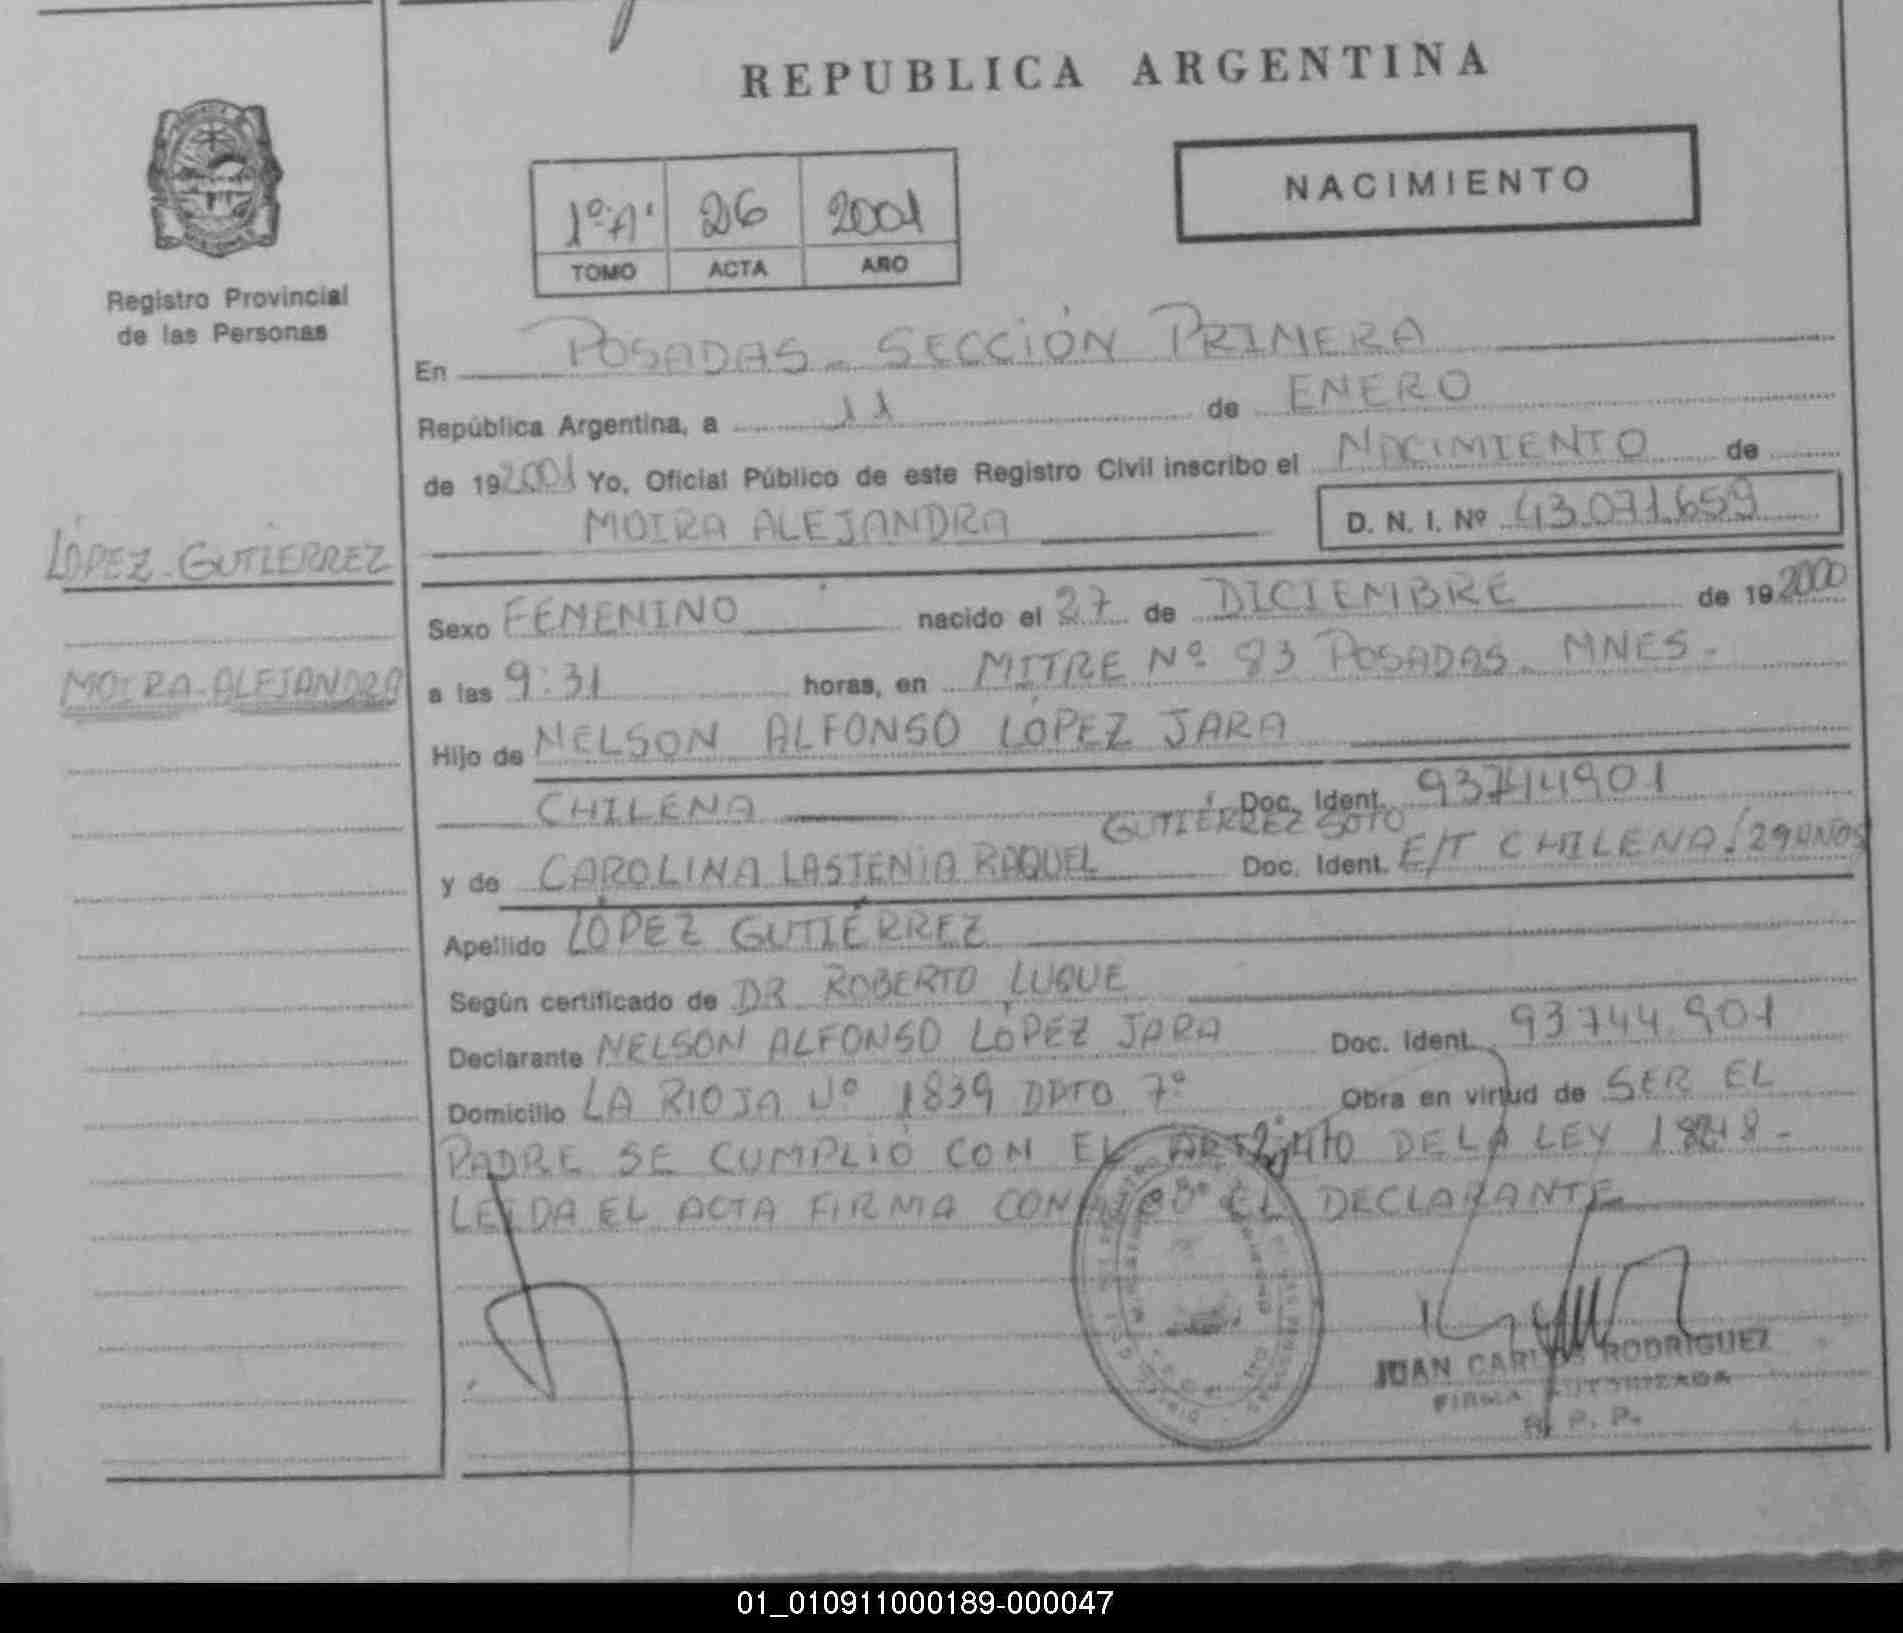 REPUBLICA ARGENTINA
NACIMIENTO
1º "A" 26 2001
TOMO ACTA AÑO
Registro Provincial
de las Personas
En POSADAS - SECCIÓN PRIMERA
República Argentina, a 11 de ENERO
de 192001 Yo, Oficial Público de este Registro Civil inscribo el NACIMIENTO de
MOIRA ALEJANDRA D. N. I. Nº 43.071.659
LÓPEZ GUTIÉRREZ
MOIRA ALEJANDRA
Sexo FEMENINO nacido el 27 de DICIEMBRE de 192000
a las 9:31 horas, en MITRE Nº 83 POSADAS - MNES -
Hijo de NELSON ALFONSO LÓPEZ JARA
CHILENA Doc. Ident. 93744901
GUTIÉRREZ SOTO
y de CAROLINA LASTENIA RAQUEL Doc. Ident. E/T CHILENA/29 AÑOS
Apellido LÓPEZ GUTIÉRREZ
Según certificado de DR ROBERTO LUQUE
Declarante NELSON ALFONSO LÓPEZ JARA Doc. Ident. 93744.901
Domicilio LA RIOJA Nº 1839 DPTO 7º Obra en virtud de SER EL
PADRE SE CUMPLIÓ CON EL DE LA LEY
LEÍDA EL ACTA FIRMA EL DECLARANTE
JUAN CARLOS RODRIGUEZ
FIRMA AUTORIZADA
R. P. P.
01_010911000189-000047